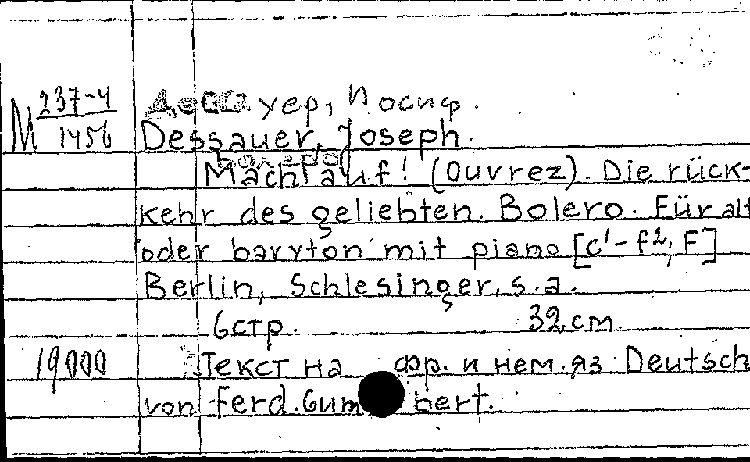 М 237-4/1456
Дессауер, Иосиф.
Dessauer, Joseph.
Macht auf! (Ouvrez). Die rück-
kehr des geliebten. Bolero. Für alt
oder baryton mit piano [c¹-f², F]
Berlin, Schlesinger, s.a.
6 стр. 32 см.
19000 Текст на фр. и нем. яз Deutsch
von Ferd. Gumbert.